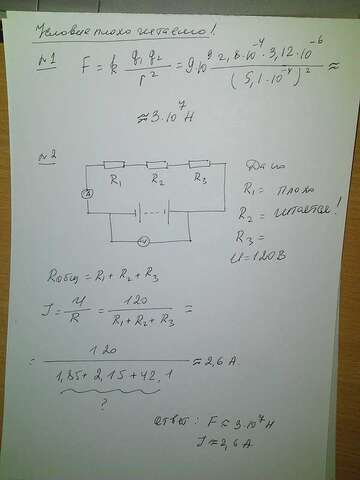 Условие плохо читаемо!
№1 F = k q1 q2 / r² = 9·10⁹ · 2,8·10⁻⁴ · 3,12·10⁻⁶ / (5,1·10⁻⁴)² ≈
≈ 3·10⁷ Н
№2
R1 R2 R3
A
V
Дано
R1 = плохо
R2 = читается!
R3 =
U = 120 В
Rобщ = R1 + R2 + R3
J = U / R = 120 / R1 + R2 + R3 =
= 120 / 1,85 + 2,15 + 42,1 ≈ 2,6 А
?
Ответ: F ≈ 3·10⁷ Н
J ≈ 2,6 А